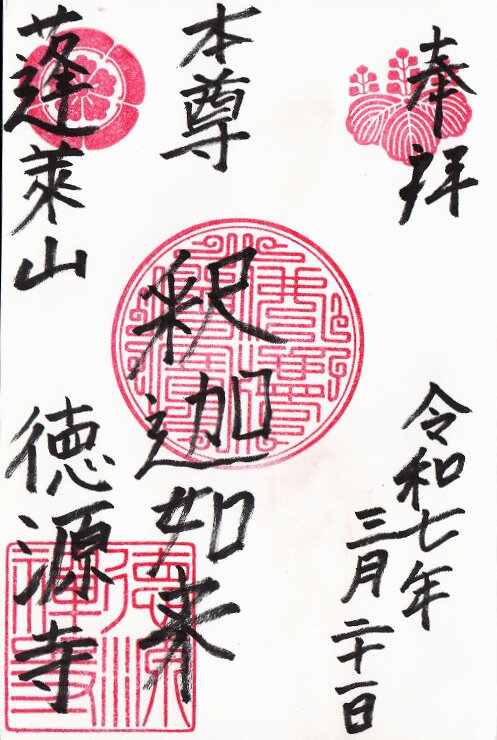 奉拝
令和七年
三月二十一日
本尊
釈迦如来
蓬莱山
徳源寺